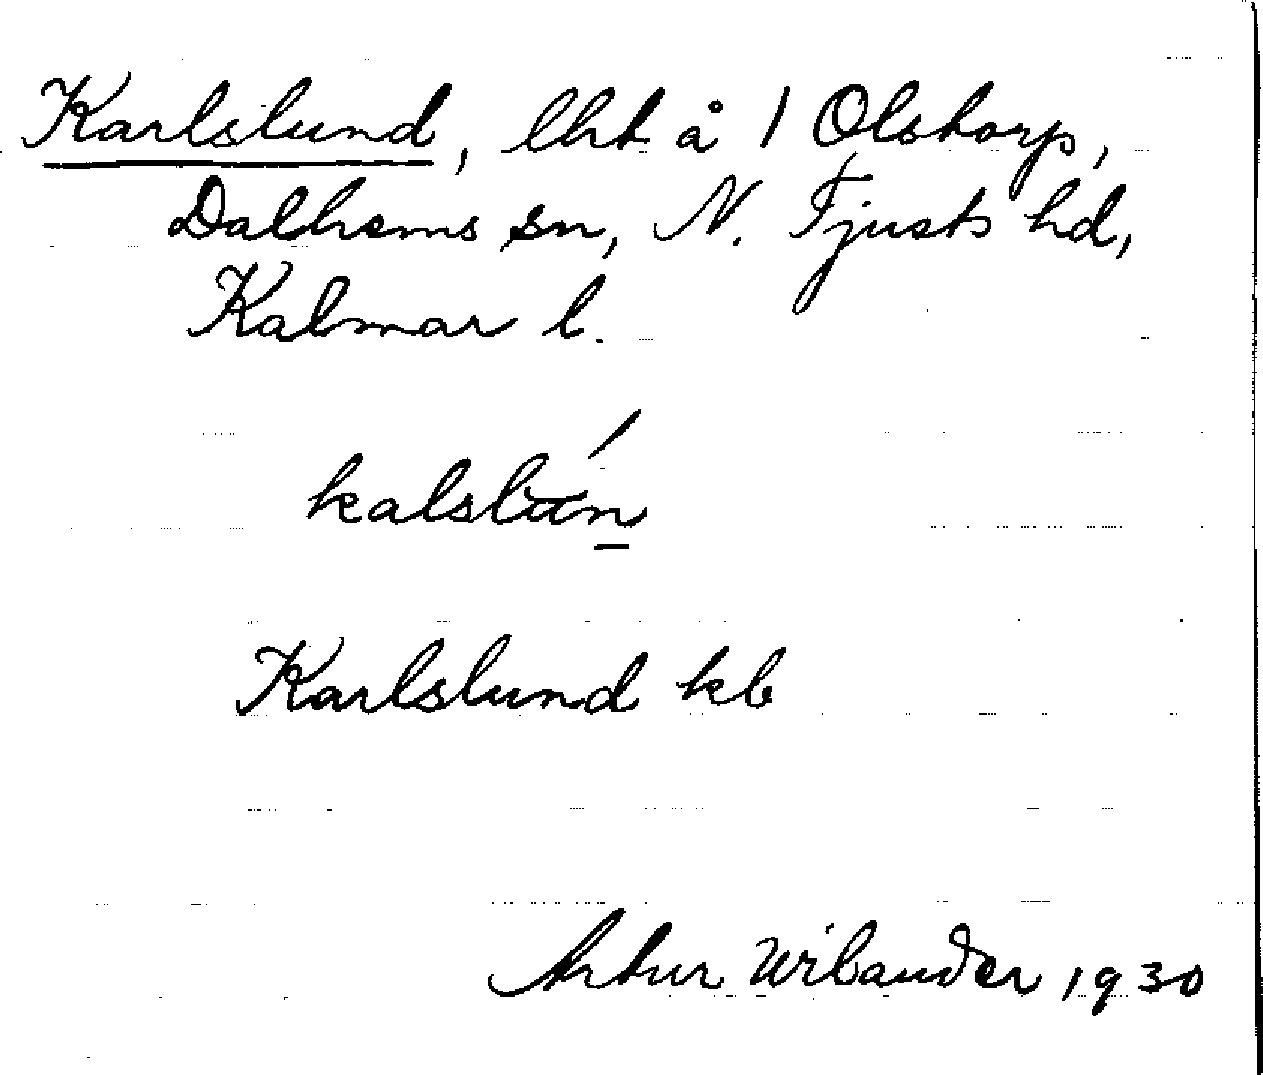 Karlslund, lht å 1 Olstorp,
Dalhems sn, N. Tjusts hd,
Kalmar l.
kalslun
Karlslund kb
Artur Wilander 1930